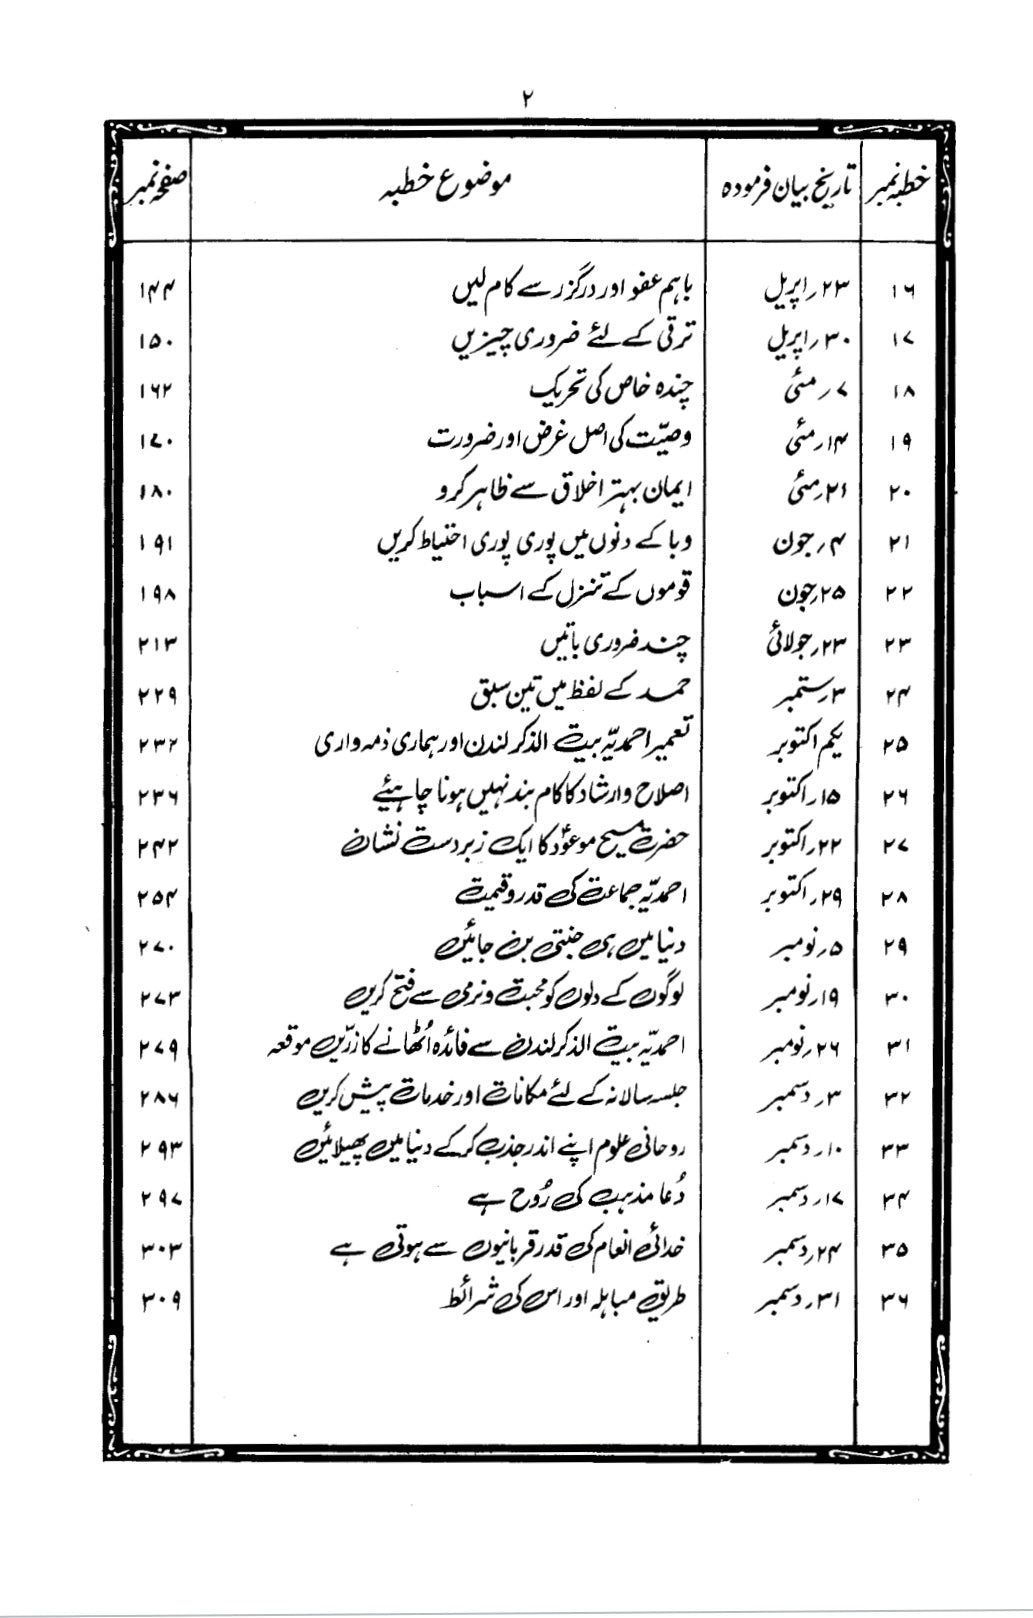 ۲
خطبہ نمبر تاریخ بیان فرمودہ موضوع خطبہ صفحہ نمبر
۱۶ ۲۳؍اپریل باہم عفو اور درگزر سے کام لیں ۱۴۴
۱۷ ۳۰؍اپریل ترقی کے لئے ضروری چیزیں ۱۵۰
۱۸ ۷؍مئی چندہ خاص کی تحریک ۱۶۲
۱۹ ۱۴؍مئی وصیّت کی اصل غرض اور ضرورت ۱۷۰
۲۰ ۲۱؍مئی ایمان بہتر اخلاق سے ظاہر کرو ۱۸۰
۲۱ ۴؍جون وبا کے دنوں میں پوری پوری احتیاط کریں ۱۹۱
۲۲ ۲۵؍جون قوموں کے تنزل کے اسباب ۱۹۸
۲۳ ۲۳؍جولائی چند ضروری باتیں ۲۱۳
۲۴ ۳؍ستمبر حمد کے لفظ میں تین سبق ۲۲۹
۲۵ یکم اکتوبر تعمیر احمدیّہ بیت الذکر لندن اور ہماری ذمہ واری ۲۳۲
۲۶ ۱۵؍اکتوبر اصلاح و ارشاد کا کام بند نہیں ہونا چاہئیے ۲۳۶
۲۷ ۲۲؍اکتوبر حضرت مسیح موعودؑ کا ایک زبردست نشان ۲۴۲
۲۸ ۲۹؍اکتوبر احمدیّہ جماعت کی قدر و قیمت ۲۵۴
۲۹ ۵؍نومبر دنیا میں ہی جنتی بن جائیں ۲۷۰
۳۰ ۱۹؍نومبر لوگوں کے دلوں کو محبت و نرمی سے فتح کریں ۲۷۳
۳۱ ۲۶؍نومبر احمدیّہ بیت الذکر لندن سے فائدہ اُٹھانے کا زرّیں موقعہ ۲۷۹
۳۲ ۳؍دسمبر جلسہ سالانہ کے لئے مکانات اور خدمات پیش کریں ۲۸۶
۳۳ ۱۰؍دسمبر روحانی علوم اپنے اندر جذب کر کے دنیا میں پھیلائیں ۲۹۳
۳۴ ۱۷؍دسمبر دُعا مذہب کی رُوح ہے ۲۹۷
۳۵ ۲۴؍دسمبر خدائی انعام کی قدر قربانیوں سے ہوتی ہے ۳۰۳
۳۶ ۳۱؍دسمبر طریق مباہلہ اور اس کی شرائط ۳۰۹